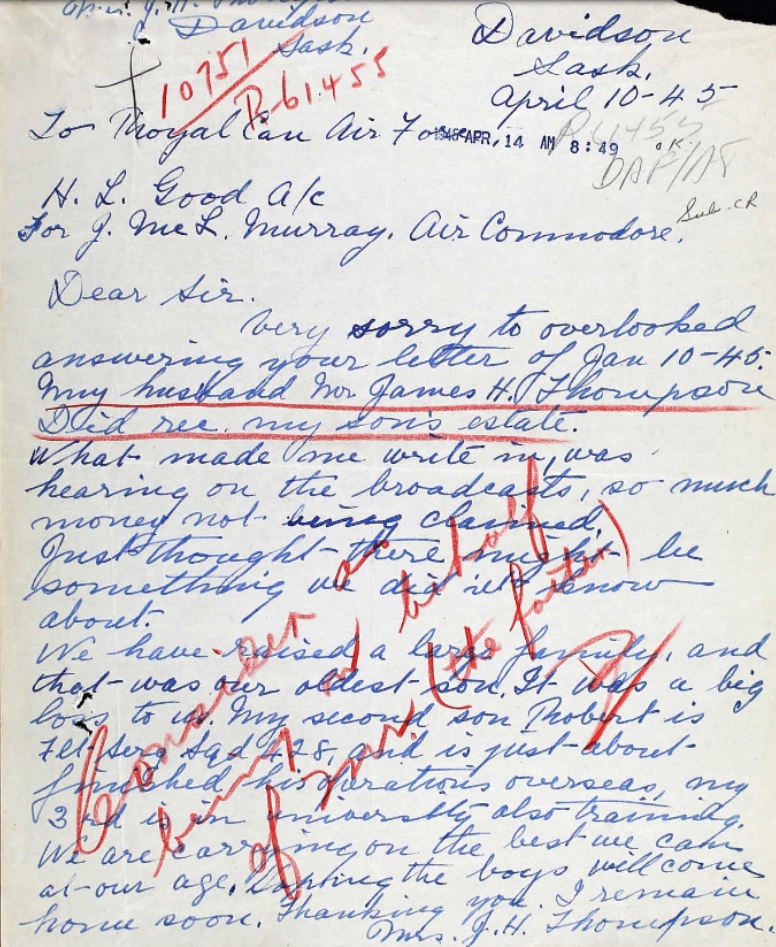 Mrs. J. H. Thompson
Davidson
Sask.
10751
R-61455
Davidson
Sask.
April 10-45
To Royal Can Air Fo
APR, 14 AM 8:49
R 61455
OK
DAF/AF
Sub. CR
H. L. Good a/c
For J. McL. Murray. Air Commodore.
Dear Sir.
Very sorry to overlooked
answering your letter of Jan 10-45.
My husband Mr James H. Thompson
Did rec. my son's estate.
What made me write in, was
hearing on the broadcasts, so much
money not being claimed.
Just thought there might be
something we did n't know
about.
We have raised a large family, and
that was our oldest son. It was a big
loss to us. My second son Robert is
Flt Serg Sqd 428, and is just about
finished his operations overseas, my
3rd is in university also training.
We are carrying on the best we can
at our age. Hoping the boys will come
home soon. Thanking you. I remain
Mrs. J. H. Thompson.
Consider as
being on behalf
of Mr. (the father)